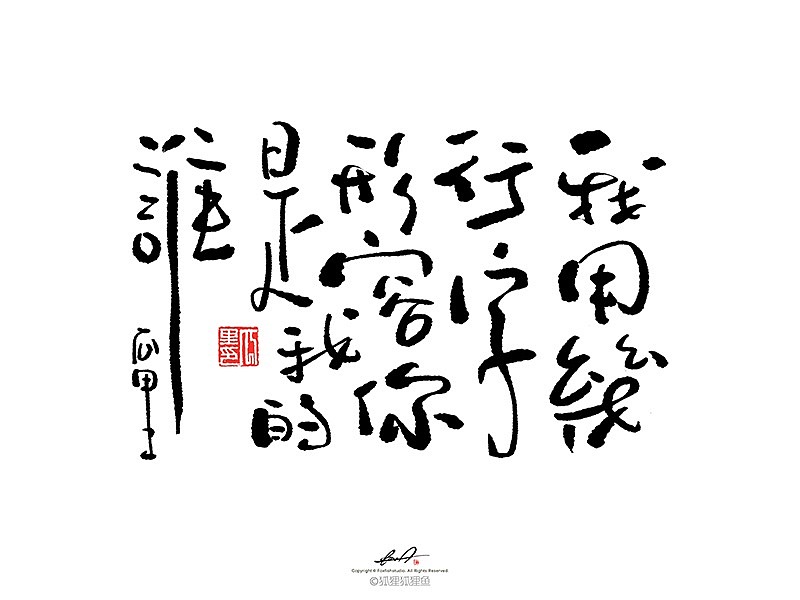 我用幾
行字
形容你
是我的
誰
瓜甲
Copyright © Foxfishstudio. All Rights Reserved.
©狐狸狐狸鱼